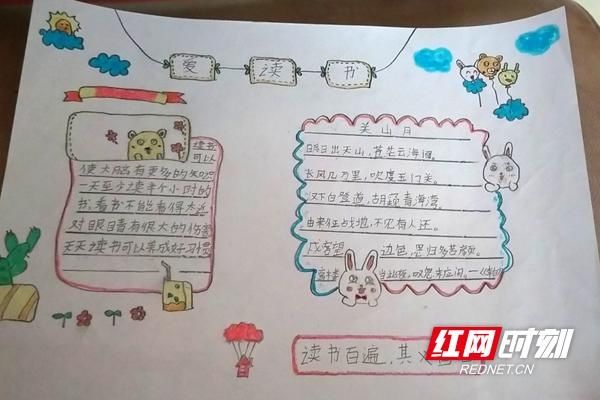 爱 读 书
读书
可以
使大脑有更多的知识
一天至少读半个小时的
书,看书不能看得太近
对眼睛有很大的伤害
天天读书可以养成好习惯
关山月
明月出天山,苍茫云海间。
长风几万里,吹度玉门关。
汉下白登道,胡窥青海湾。
由来征战地,不见有人还。
戍客望 边色,思归多苦颜。
高楼当此夜,叹息未应闲。
读书百遍,其义自
红网时刻
REDNET.CN